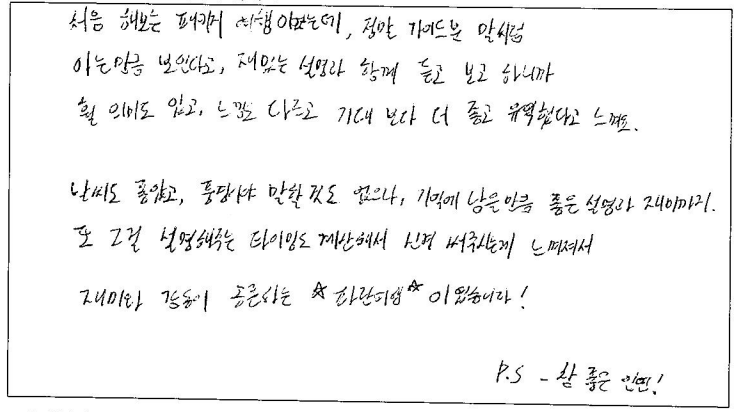 처음 해보는 패키지 여행이었는데, 정말 가이드분 말처럼
아는만큼 보인다고, 재밌는 설명과 함께 듣고 보고 하니까
훨 의미도 있고, 느낌도 다르고 기대 보다 더 좋고 유익했다고 느껴요.
날씨도 좋았고, 풍경이야 말할것도 없으나, 기억에 남을만큼 좋은 설명과 재미까지.
또 그걸 설명해주는 타이밍도 계산해서 신경 써주시는게 느껴져서
재미와 감동이 공존하는 ☆파란여행☆이었습니다!
P.S - 참 좋은 인연!